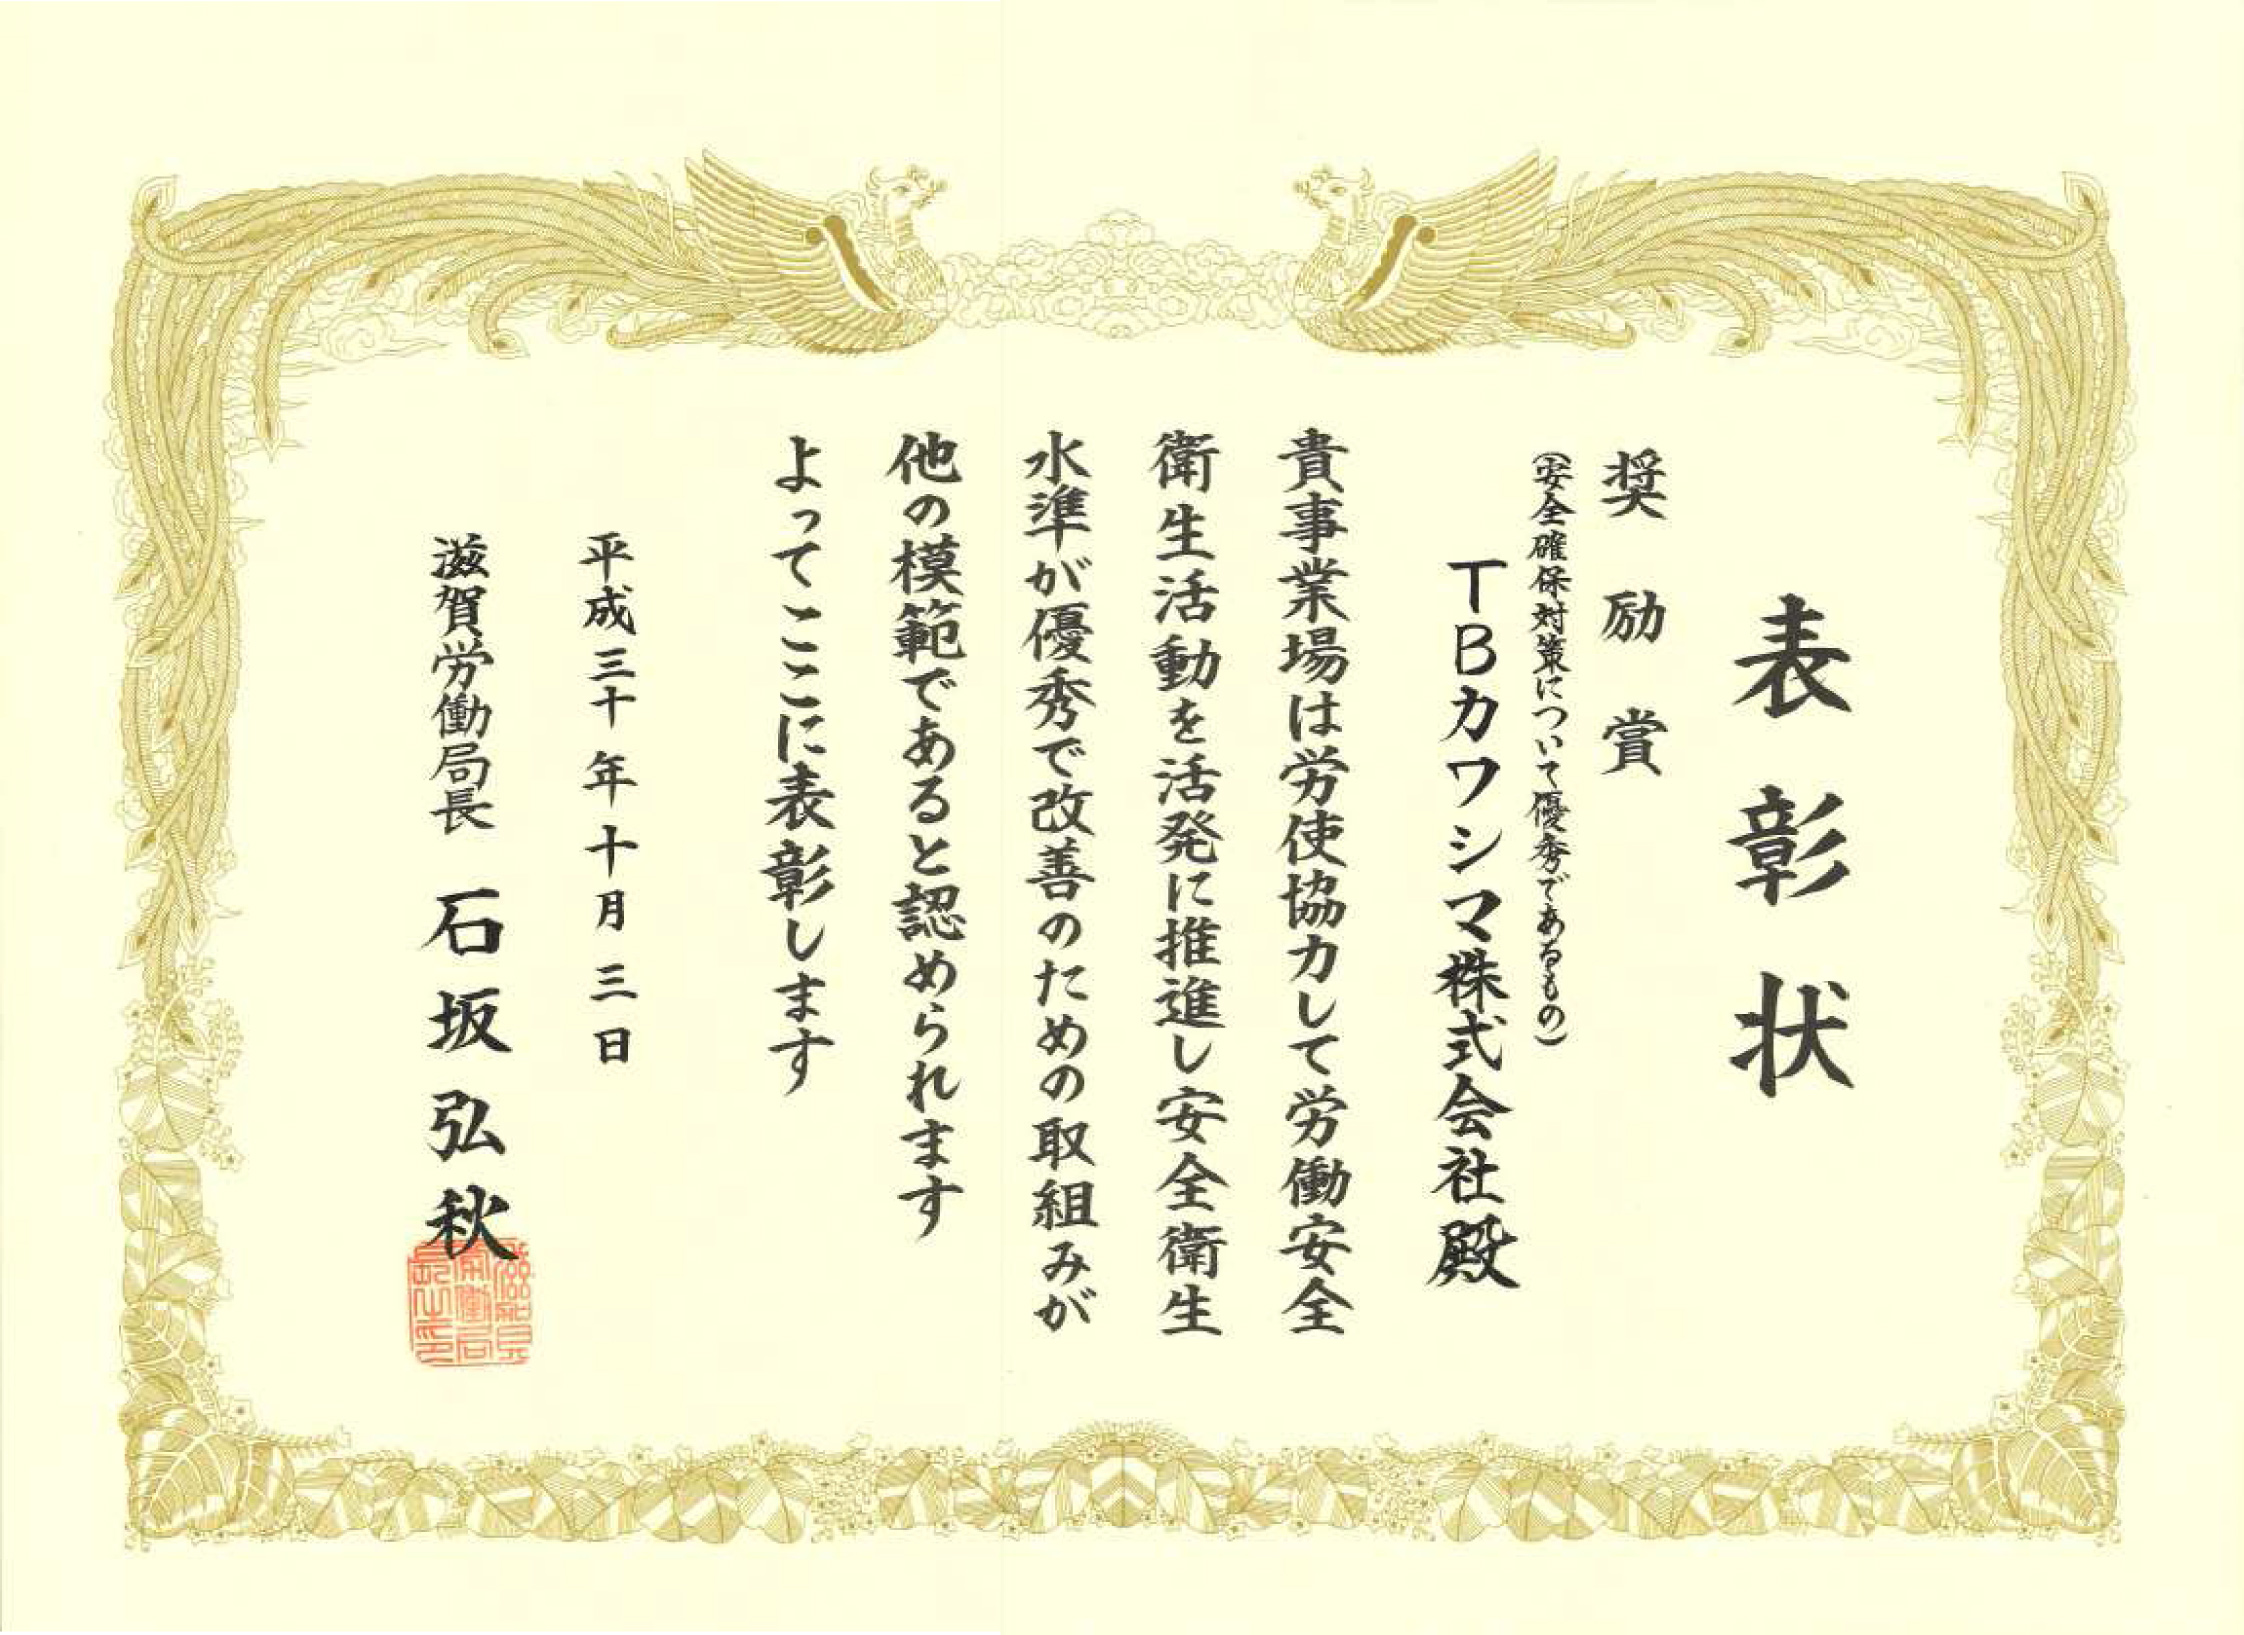 表彰状
奨励賞
(安全確保対策について優秀であるもの)
TBカワシマ株式会社殿
貴事業場は労使協力して労働安全
衛生活動を活発に推進し安全衛生
水準が優秀で改善のための取組みが
他の模範であると認められます
よってここに表彰します
平成三十年十月三日
滋賀労働局長 石坂弘秋
滋賀労働局長之印